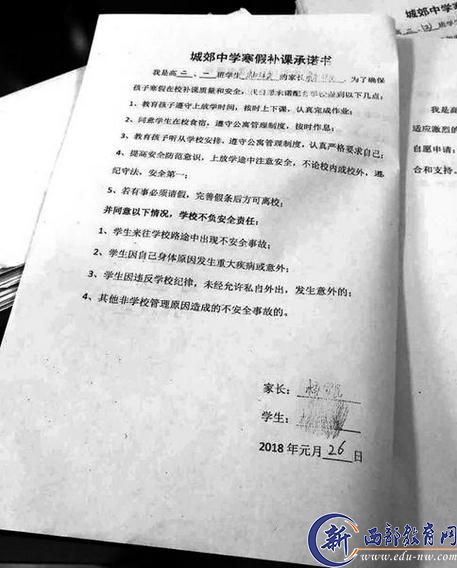 城郊中学寒假补课承诺书
我是高二、一班学生 的家长 为了确保
孩子寒假在校补课质量和安全,我自愿承诺配合学校做到以下几点:
1、教育孩子遵守上放学时间,按时上下课,认真完成作业;
2、同意学生在校食宿,遵守公寓管理制度,按时作息;
3、教育孩子听从学校安排,遵守公寓管理制度,认真严格要求自己;
4、提高安全防范意识,上放学途中注意安全,不论校内或校外,遵
纪守法,安全第一;
5、若有事必须请假,完善假条后方可离校;
并同意以下情况,学校不负安全责任:
1、学生来往学校路途中出现不安全事故;
2、学生因自己身体原因发生重大疾病或意外;
3、学生因违反学校纪律,未经允许私自外出,发生意外的;
4、其他非学校管理原因造成的不安全事故的。
家长:
学生:
2018 年元月 26 日
我是高
适应激烈的
自愿申请:
合和支持。
新 西部教育网
www.edu-nw.com